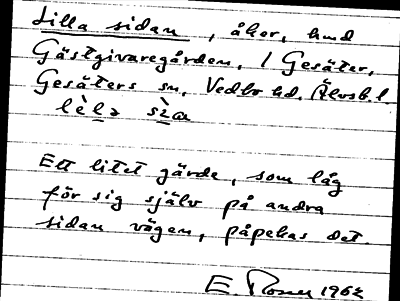 Lilla sidan, åker, hmd
Gästgivaregården, 1 Gesäter,
Gesäters sn, Vedbo hd. Älvsb. l
lèlɔ sìɑ
Ett litet gärde, som låg
för sig själv på andra
sidan vägen, påpekas det.
E. Rosen 1962